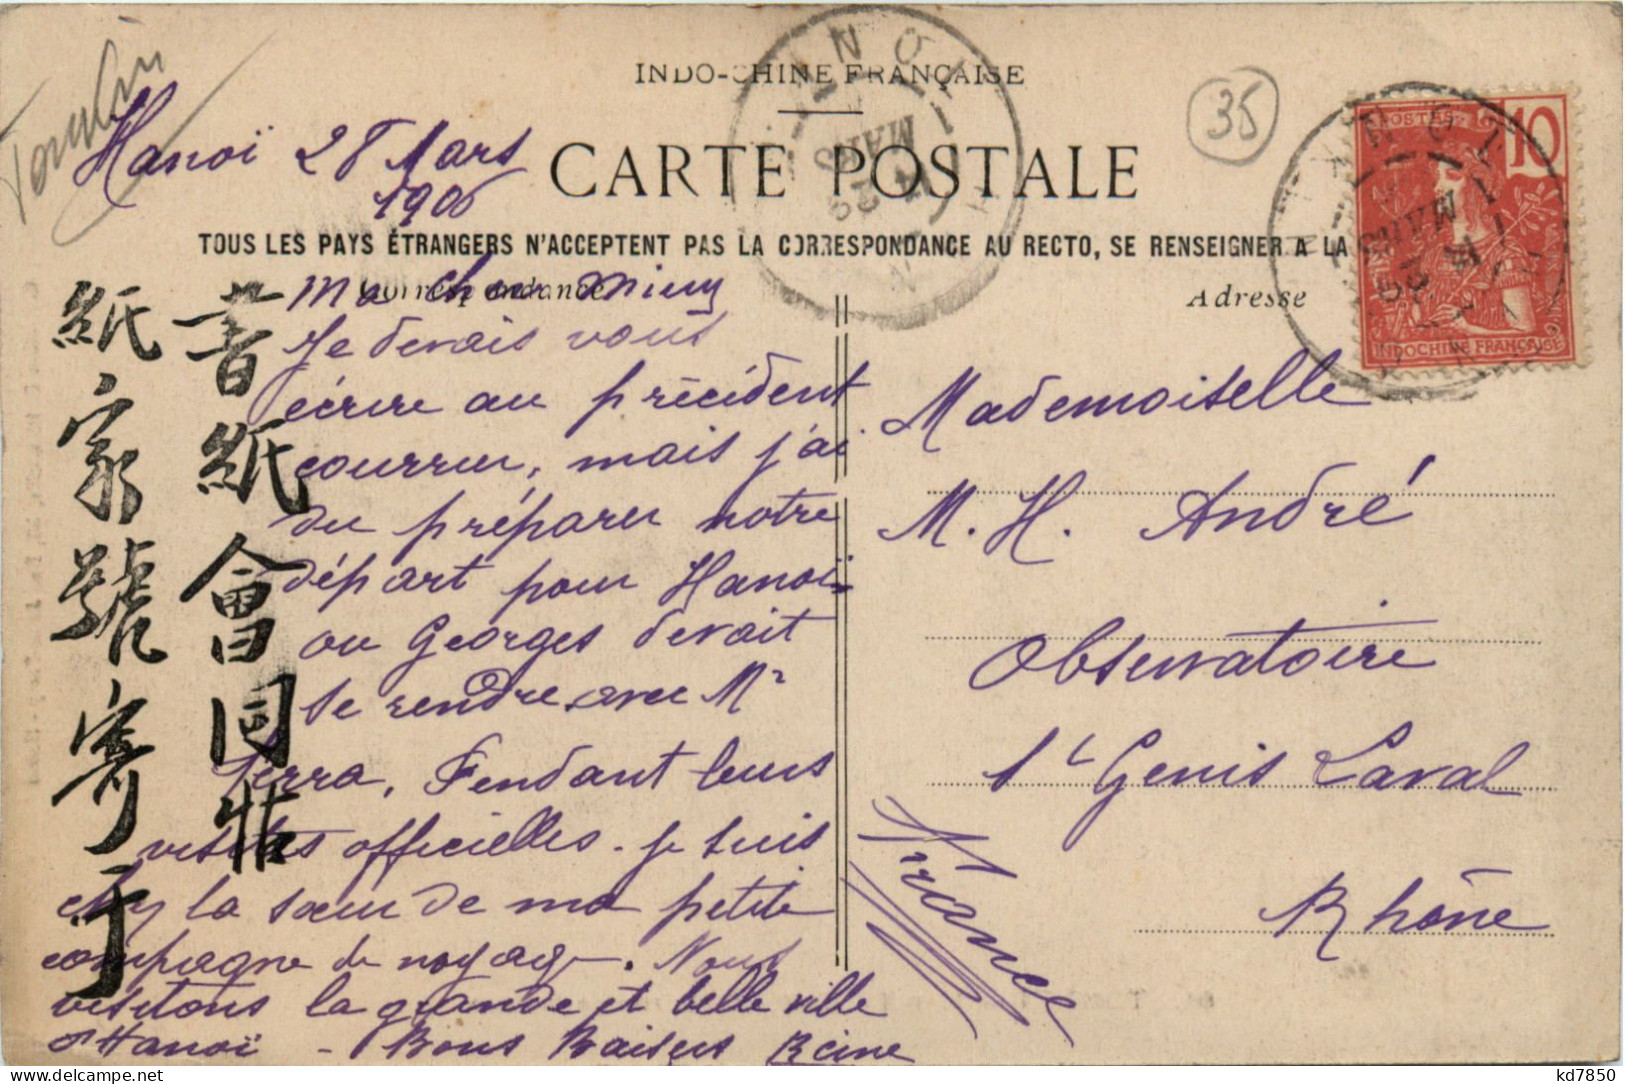 Tonkin
INDO-CHINE FRANÇAISE
35
Hanoï 28 Mars
1906
CARTE POSTALE
TOUS LES PAYS ÉTRANGERS N'ACCEPTENT PAS LA CORRESPONDANCE AU RECTO, SE RENSEIGNER A LA
HANOI
MARS
POSTES 10
INDOCHINE FRANÇAISE
Correspondance
Adresse
書紙會同
紙家號寄于
Ma chère
Je devais vous
écrire au précédent
courrier, mais j'ai
du préparer notre
départ pour Hanoï
ou Georges devait
se rendre avec Mr
Serra, Pendant leurs
visites officielles - je suis
chez la sœur de ma petite
compagne de voyage. Nous
visitons la grande et belle ville
d'Hanoï - Bons Baisers Reine
Mademoiselle
M. H. André
Observatoire
St Genis Laval
Rhône
France
kd7850